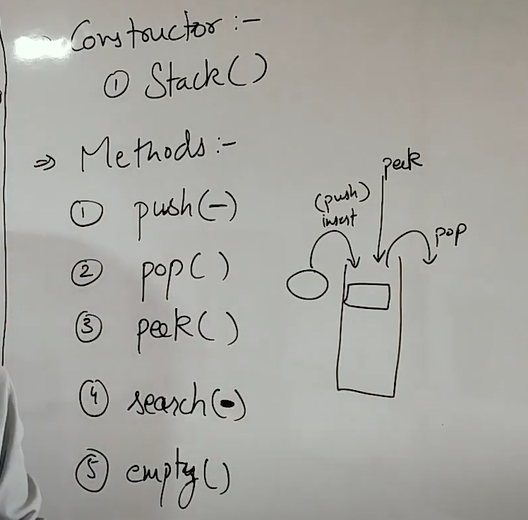 Constructor :-
① Stack()
⇒ Methods :-
① push(-)
② pop()
③ peek()
④ search(-)
⑤ empty()
peek
(push)
insert
pop